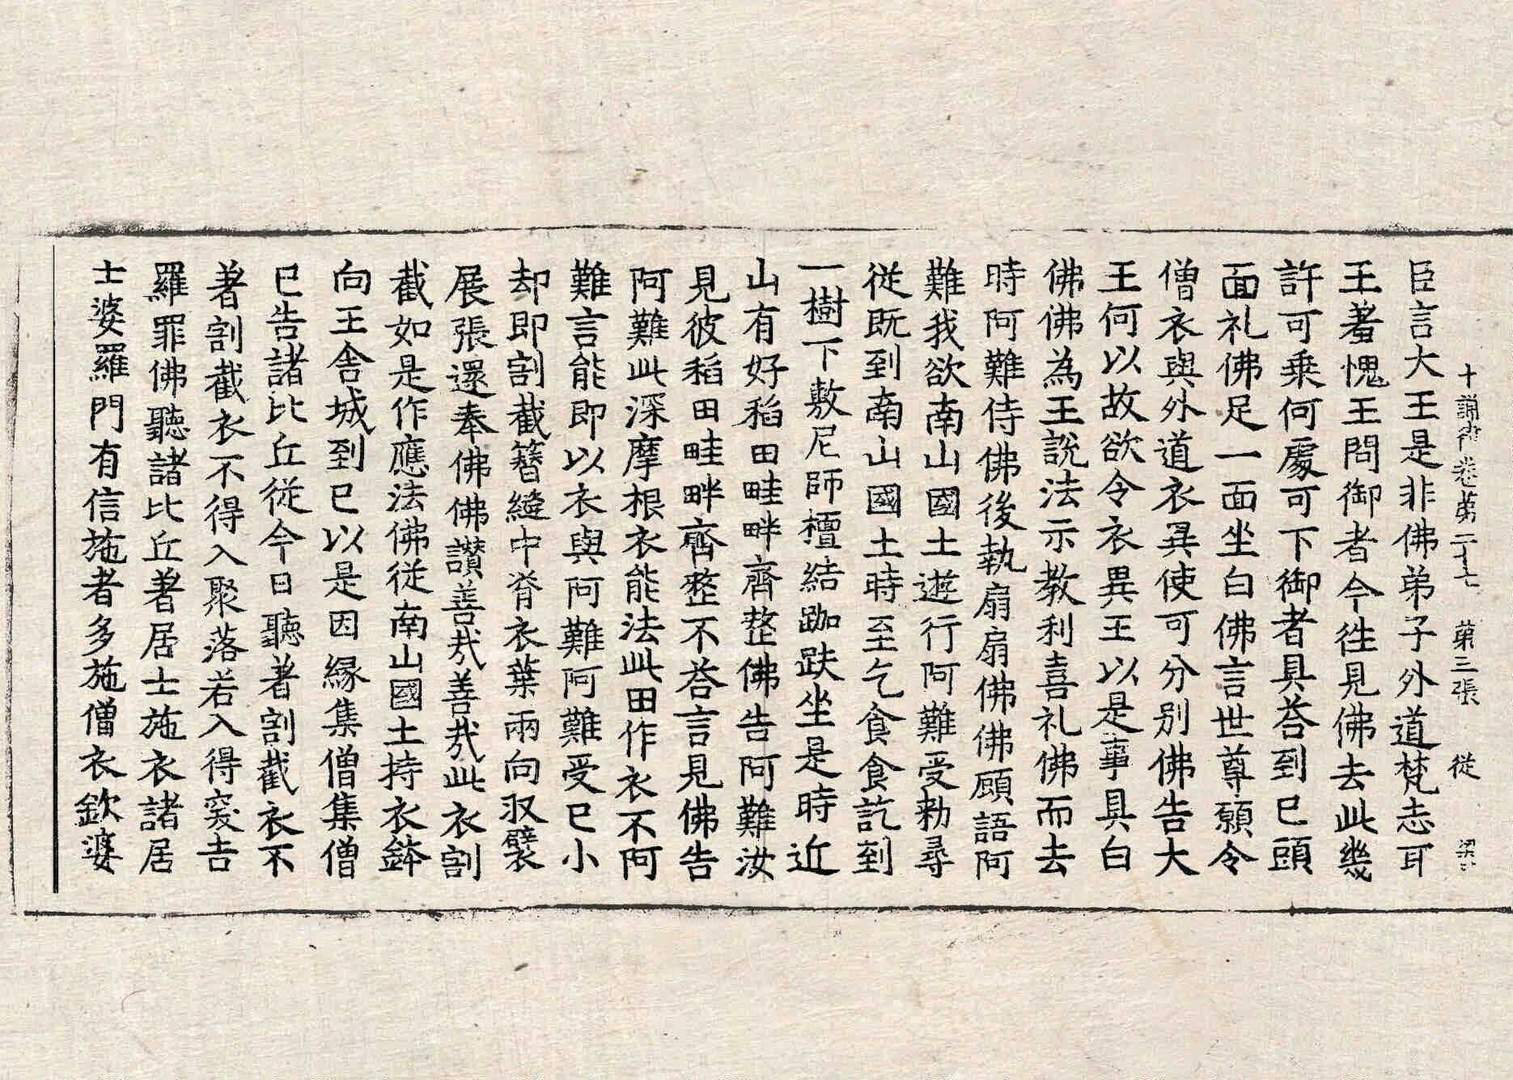 十誦律卷第二十七 第三張 從
臣言大王是非佛弟子外道梵志耳
王羞愧王問御者今徃見佛去此幾
許可乗何處可下御者具荅到已頭
面礼佛足一面坐白佛言世尊願令
僧衣與外道衣異使可分別佛告大
王何以故欲令衣異王以是事具白
佛佛為王說法示教利喜礼佛而去
時阿難侍佛後執扇扇佛佛顧語阿
難我欲南山國土遊行阿難受勑尋
從既到南山國土時至乞食食訖到
一樹下敷尼師檀結跏趺坐是時近
山有好稻田畦畔齊整佛告阿難汝
見彼稻田畦畔齊整不荅言見佛告
阿難此深摩根衣能法此田作衣不阿
難言能即以衣與阿難阿難受已小
却即割截簪縫中脊衣葉兩向収襞
展張還奉佛佛讃善㢤善㢤此衣割
截如是作應法佛從南山國土持衣鉢
向王舍城到已以是因縁集僧集僧
已告諸比丘從今日聽著割截衣不
著割截衣不得入聚落若入得突吉
羅罪佛聽諸比丘著居士施衣諸居
士婆羅門有信施者多施僧衣欽婆